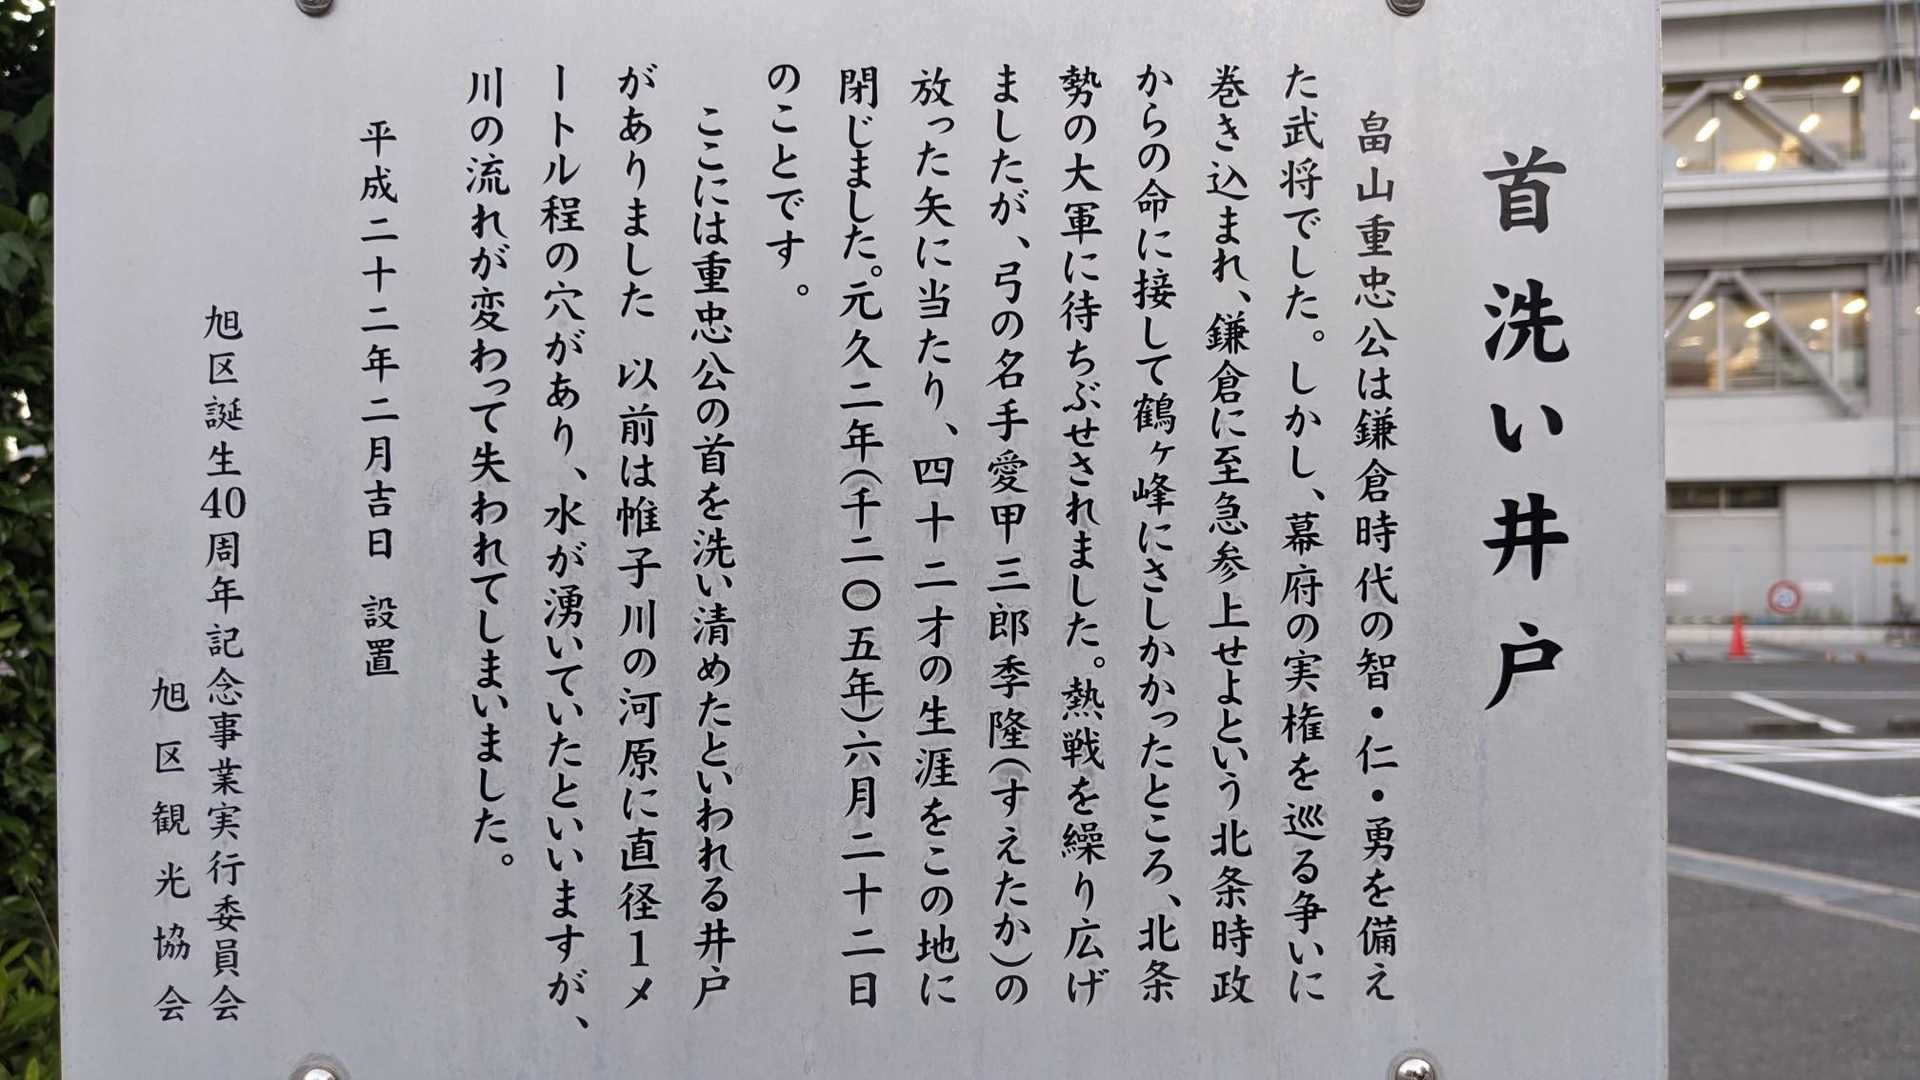 首洗い井戸
畠山重忠公は鎌倉時代の智・仁・勇を備え
た武将でした。しかし、幕府の実権を巡る争いに
巻き込まれ、鎌倉に至急参上せよという北条時政
からの命に接して鶴ヶ峰にさしかかったところ、北条
勢の大軍に待ちぶせされました。熱戦を繰り広げ
ましたが、弓の名手愛甲三郎季隆(すえたか)の
放った矢に当たり、四十二才の生涯をこの地に
閉じました。元久二年(千二〇五年)六月二十二日
のことです。
ここには重忠公の首を洗い清めたといわれる井戸
がありました 以前は帷子川の河原に直径1メ
ートル程の穴があり、水が湧いていたといいますが、
川の流れが変わって失われてしまいました。
平成二十二年二月吉日 設置
旭区誕生40周年記念事業実行委員会
旭区観光協会